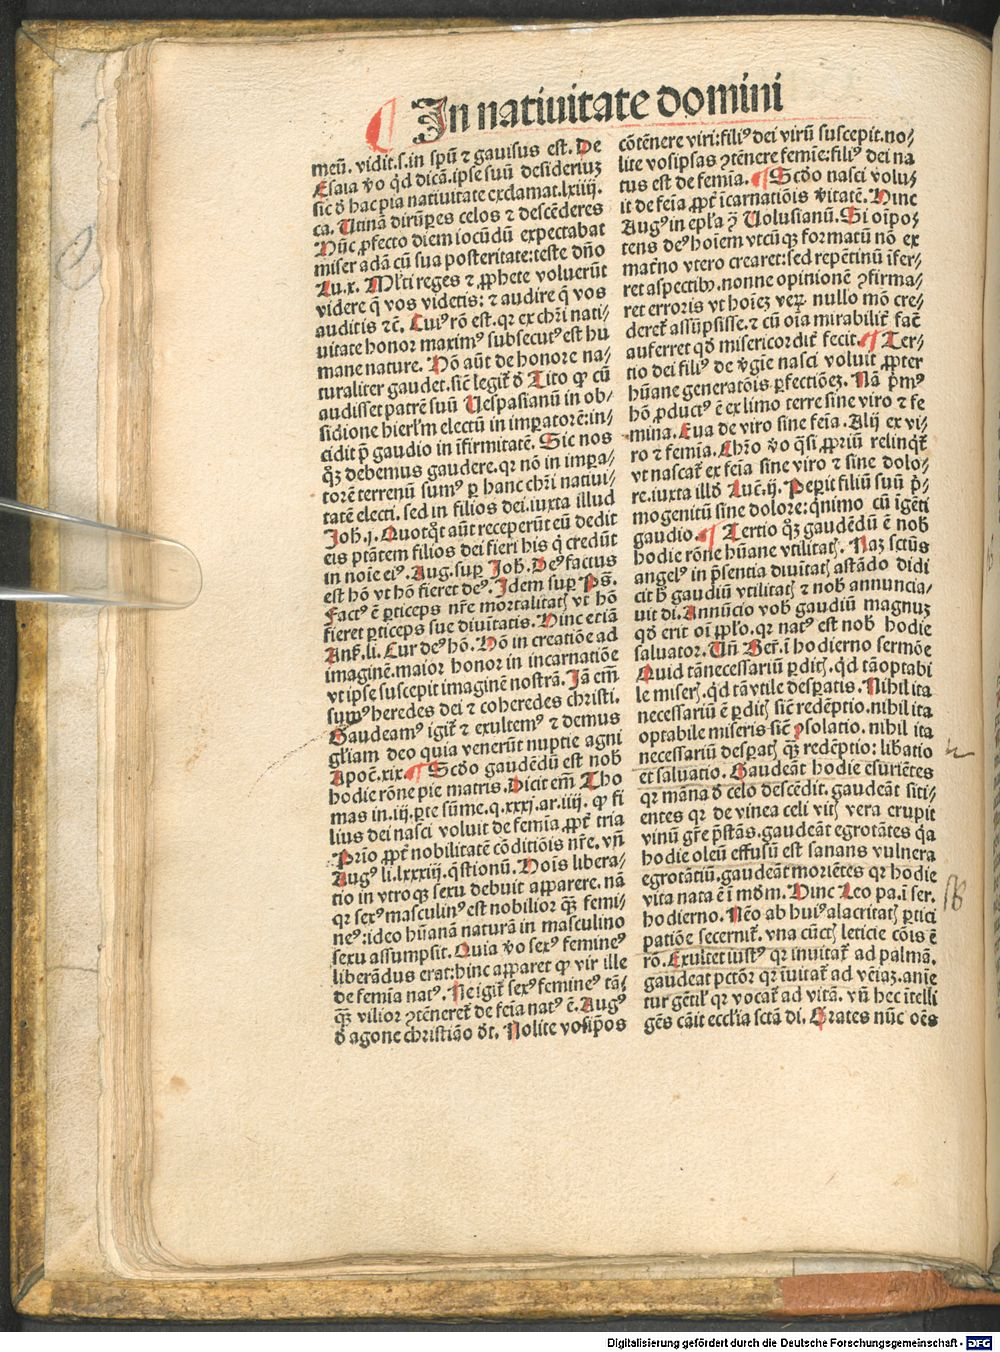 In natiuitate domini
meū. vidit.s.in spū ⁊ gauisus est. De
Esaia ꝟo qͥd dicā. ipse suū desideriuꝫ
sic ð hac pia natiuitate exclamat.lxiiij.
ca. Utinā dirūꝑes celos ⁊ descēderes
Nūc ꝓfecto diem iocūdū expectabat
miser adā cū sua posteritate: teste dn̄o
Lu.x. Ml̄ti reges ⁊ ꝓphete voluerūt
videre q̄ vos videtis: ⁊ audire q̄ vos
auditis ⁊c̄. Cuiꝰ rō est. qr ex chr̄i nati⸗
uitate honor maximꝰ subsecutꝰ est hu
mane nature. Nō aūt de honore na⸗
turaliter gaudet. sic̄ legit̄ ð Tito ꝙ cū
audisset patrē suū Uespasianū in ob⸗
sidione hierl̄m electū in imꝑatorē: in⸗
cidit p̄ gaudio in īfirmitatē. Sic nos
qꝫ debemus gaudere. qr nō in imꝑa⸗
torē terrenū sumꝰ ꝑ hanc chr̄i natiui⸗
tatē electi. sed in filios dei. iuxta illud
Joh̄.j. Quotqͦt aūt receperūt eū dedit
eis ptātem filios dei fieri his q̄ credūt
in noīe eiꝰ. Aug. suꝑ Joh̄. Deꝰ factus
est hō vt hō fieret deꝰ. Idem suꝑ Ps̄.
Factꝰ ē ꝑticeps nr̄e mortalitatꝭ vt hō
fieret ꝑticeps sue diuītatis. Hinc etiā
Anß. li. Cur deꝰ hō. Nō in creatiōe ad
imaginē. maior honor in incarnatiōe
vt ipse suscepit imaginē nostrā. Jā em̄
sumꝰ heredes dei ⁊ coheredes christi.
Gaudeamꝰ igit̄ ⁊ exultemꝰ ⁊ demus
gl̄iam deo quia venerūt nuptie agni
Apoc̄. xix. ¶ Scd̄o gaudēdū est nob̄
hodie rōne pie matris. Dicit em̄ Tho
mas in.iij.ꝑte sūme.q.xxxj.ar.iiij. ꝙ fi
lius dei nasci voluit de femīa ꝓpt̄ tria
Prīo ꝓpt̄ nobilitatē cōditiōis nr̄e. vn̄
Augꝰ li.lxxxiij. q̄stionū. Hoīs libera⸗
tio in vtroqꝫ sexu debuit apparere. nā
qr sexꝰ masculinꝰ est nobilior qꝫ̄ femi⸗
neꝰ: ideo hūanā naturā in masculino
sexu assumpsit. Quia ꝟo sexꝰ femineꝰ
liberādus erat: hinc apparet ꝙ vir ille
de femīa natꝰ. Ne igit̄ sexꝰ femineꝰ tā⸗
qꝫ̄ vilior ꝯtēneret̄ de feīa natꝰ ē. Augꝰ
ð agone christiāo ðt. Nolite vosip̄os
cōtēnere viri: filiꝰ dei virū suscepit. no⸗
lite vosipsas ꝯtēnere femīe: filiꝰ dei na
tus est de femīa. ¶ Scd̄o nasci volu⸗
it de feīa ꝓpt̄ īcarnatiōis ꝟitatē. Hinc
Augꝰ in epl̄a ꝯ̄ Uolusianū. Si oīpo⸗
tens deꝰ hoīem vtcūqꝫ formatū nō ex
mat̄no vtero crearet: sed repētinū īfer⸗
ret aspectibꝰ. nonne opinionē ꝯfirma⸗
ret erroris vt hoīeꝫ veꝝ nullo mō cre⸗
deret̄ assūpsisse. ⁊ cū oīa mirabilit̄ fac̄
auferret qð misericordit̄ fecit. ¶ Ter⸗
tio dei filiꝰ de ꝟgīe nasci voluit ꝓpter
hūane generatōis ꝑfectiōeꝫ. Nā pͥmꝰ
hō ꝓductꝰ ē ex limo terre sine viro ⁊ fe
mina. Eua de viro sine feīa. Alij ex vi⸗
ro ⁊ femīa. Chr̄o ꝟo qͣsi ꝓpriū relinqͥt̄
vt nascat̄ ex feīa sine viro ⁊ sine dolo⸗
re. iuxta illð Luc̄.ij. Peꝑit filiū suū pͥ⸗
mogenitū sine dolore: qͥnimo cū īgēti
gaudio. ¶ Tertio qꝫ gaudēdū ē nob̄
hodie rōne hūane vtilitatꝭ. Naꝫ sctūs
angelꝰ in p̄sentia diuītatꝭ astādo didi
cit h̄ gaudiū vtilitatꝭ ⁊ nob̄ annuncia⸗
uit di. Annūcio vob̄ gaudiū magnuꝫ
qð erit oī ppl̄o. qr natꝰ est nob̄ hodie
saluator. Un̄ Ber̄. ī hodierno sermōe
Quid tānecessariū ꝑditꝭ. qͥd tāoptabi
le miserꝭ. qͥd tāvtile desꝑatis. Nihil ita
necessariū ē ꝑditꝭ sic̄ redēptio. nihil ita
optabile miseris sic̄ ꝯsolatio. nihil ita
necessariū desꝑatꝭ qꝫ̄ redēptio: libatio
et saluatio. Gaudeāt hodie esuriētes
qr māna ð celo descēdit. gaudeāt siti⸗
entes qr de vinea celi vitꝭ vera erupit
vinū gr̄e p̄stās. gaudeāt egrotātes qͣa
hodie oleū effusū est sanans vulnera
egrotātiū. gaudeāt moriētes qr hodie
vita nata ē ī mðm. Hinc Leo pa. ī ser.
hodierno. Nēo ab huiꝰ alacritatꝭ ꝑtici
patiōe secernit̄. vna cūctꝭ leticie cōis ē
rō. Exultet iustꝰ qr inuitat̄ ad palmā.
gaudeat pctōr qr īuitat̄ ad vēiaꝫ. anīe
tur gētilꝭ qr vocat̄ ad vitā. vn̄ hec ītelli
gēs cāit eccl̄ia sctā di. Grates nūc oēs
Digitalisierung gefördert durch die Deutsche Forschungsgemeinschaft - DFG